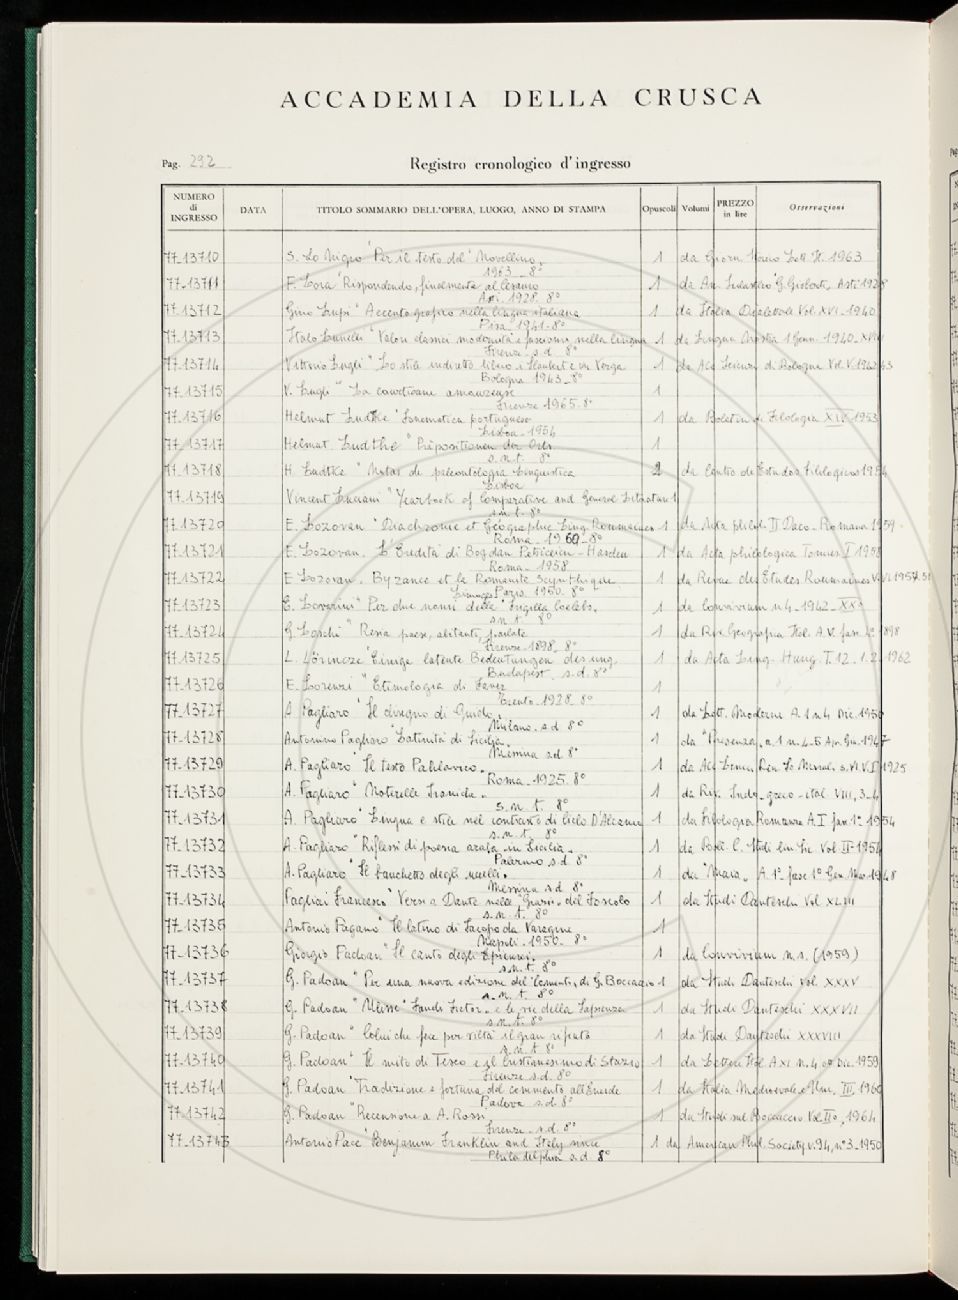 ACCADEMIA DELLA CRUSCA
Pag. 292
Registro cronologico d'ingresso
NUMERO di INGRESSO DATA TITOLO SOMMARIO DELL'OPERA, LUOGO, ANNO DI STAMPA Opuscoli Volumi PREZZO in lire Osservazioni
77-13710 S. Lo Nigro "Per il testo del "Novellino" 1 da Giorn. Storico Lett. It. 1963
1963 - 8°
77-13711 F. Lora "Rispondendo, finalmente al 1 da An. G. Asti 1928
Asti. 1928. 8°
77-13712 Gino Lupi" Accento grafico nella lingua italiana 1 da Italia Dialettale Vol. XVI. 1940
Pisa 1941. 8°
77-13713 Italo Lunelli "Valori classici modernità e fascismo nella lingua 1 da Lingua Nostra 1 Genn. 1940. XVIII
Firenze s.d. 8°
77-13714 Vittorio Lugli" Lo stile indiretto libero in Flaubert e in Verga 1 da Acc Scienze di Bologna Vol. V. 1942-43
Bologna 1943. 8°
77-13715 V. Lugli" La courtisane amoureuse 1
Firenze 1965. 8°
77-13716 Helmut Ludtke "Fonematica portuguesa 1 da Boletim di Filologia XIV 1953
Lisboa. 1954
77-13717 Helmut. Ludtke "Präpositionen der Orts 1
s.n.t. 8°
77-13718 H. Ludtke "Notas de paleontologia Linguistica 1 da Centro de Estudos Filologicos 1954
Lisboa
77-13719 Vincent Luciani "Yearbook of Comparative and General Literature 1
s.n.t. 8°
77-13720 E. Lozovan "Diachronie et Géographie Ling. Roumaines 1 da Acta philol. II Daco-Romana 1959
Roma. 1960 - 8°
77-13721 E. Lozovan. L'Erudit di Bogdan Petriceicu-Hasdeu 1 da Acta philologica Tomus I 1958
Roma. 1958
77-13722 E Lozovan. Byzance et la Romanité Scythique 1 da Revue des Études Roumaines V.VI. 1957.58
Paris. 1960. 8°
77-13723 E. Lovarini" Per due nomi della "fringilla Coelebs. 1 da Convivium n 4 - 1942 - XX°
s.n.t. 8°
77-13724 G. Loschi" Resia paese, abitanti, parlate 1 da Riv. Geografica Ital. A.V. fasc. 4° 1898
Firenze 1898. 8°
77-13725 L. Lörincze "Einige latente Bedeutungen des ung. 1 da Acta Ling. Hung. T. 12. 1.2. 1962
Budapest. s.d. 8°
77-13726 E. Lorenzi "Etimologia di Faver 1
Trento. 1928. 8°
77-13727 A Pagliaro "Il disegno di Guido. 1 da Lett. Moderne A. 1 n. 4 Dic. 1950
Milano. s.d 8°
77-13728 Antonino Pagliaro "Latinità di Sicilia. 1 da "Presenza" a 1 n. 4-5 Apr. Giu. 1947
Messina s.d 8°
77-13729 A. Pagliaro "Il testo Pahlavico. 1 da Acc Lincei Ren. Sc Morali s. VI. V. I 1925
Roma. 1925. 8°
77-13730 A. Pagliaro" Noterelle Iranida. 1 da Riv. Indo-greco-ital. VIII, 3-4
s.n.t. 8°
77-13731 A. Pagliaro "Lingua e stile nel contrasto di Cielo D'Alcamo 1 da Filologia Romanza A. I fasc. 1° 1954
s.n.t. 8°
77-13732 A. Pagliaro "Riflessi di poesia araba in Sicilia. 1 da Boll. C. Studi Lin. Sic. Vol. II 1954
Palermo s.d. 8°
77-13733 A. Pagliaro "Il banchetto degli uccelli. 1 da "Ausa" A. 1° fasc 1° Gen. Mar. 1948
Messina s.d 8°
77-13734 Pagliai Francesco "Versi a Dante nelle "Grazie" del Foscolo 1 da Studi Danteschi Vol. XLIII
s.n.t. 8°
77-13735 Antonio Pagano "Il latino di Iacopo da Varagine 1
Napoli. 1950. 8°
77-13736 Giorgio Padoan "Il canto degli Epicurei. 1 da Convivium n.s. (1959)
s.n.t. 8°
77-13737 G. Padoan" Per una nuova edizione del "Comento" di G. Boccaccio 1 da Studi Danteschi vol. XXXV
s.n.t. 8°
77-13738 G. Padoan "Ulisse "Fandi Fictor" e le vie della Sapienza 1 da Studi Danteschi XXXVII
s.n.t. 8°
77-13739 G. Padoan" Colui che fece per viltà il gran rifiuto 1 da Studi Danteschi XXXVIII
s.n.t. 8°
77-13740 G. Padoan" Il mito di Teseo e il Cristianesimo di Stazio 1 da Lettere Ital. A XI n. 4 ott Dic. 1959
Firenze s.d. 8°
77-13741 G. Padoan "Tradizione e fortuna del commento all'Eneide 1 da Italia Medioevale e Um. III, 1960
Padova s.d. 8°
77-13742 G. Padoan "Recensione a A. Rossi 1 da Studi sul Boccaccio Vol. II°, 1964
Firenze. s.d. 8°
77-13743 Antonio Pace "Benjamin Franklin and Italy since 1 da American Phil. Society v. 94, n° 3. 1950
Philadelphia s.d. 8°